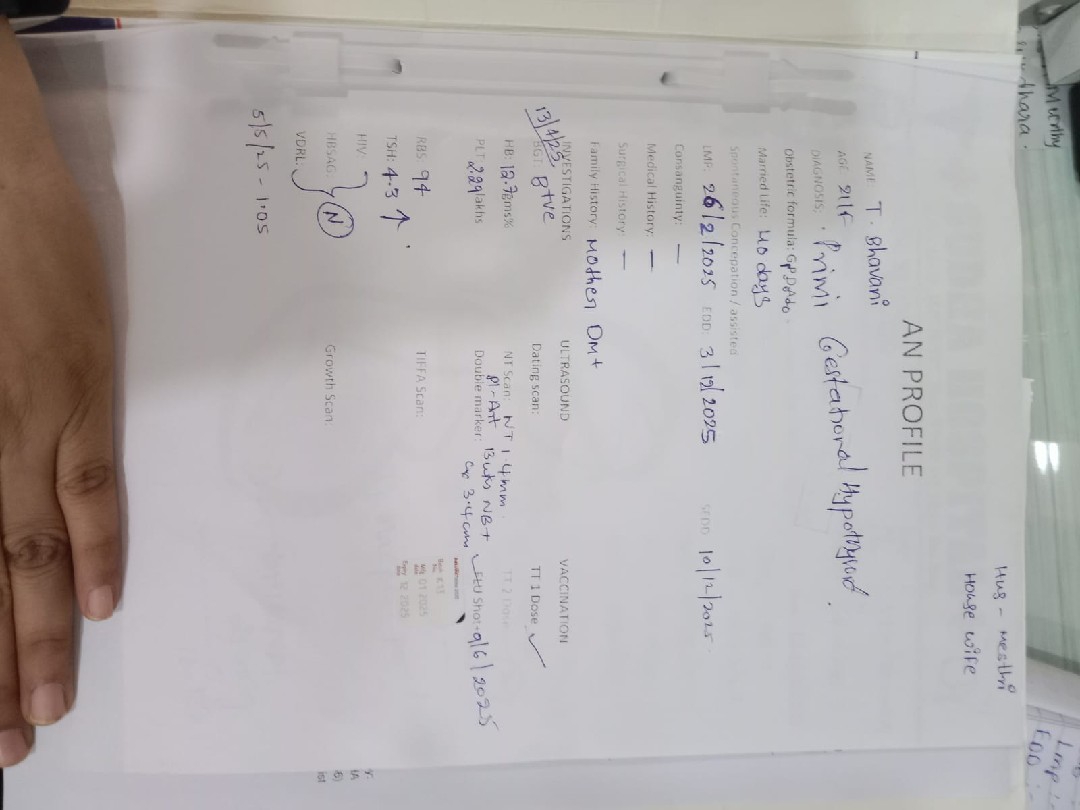 Hus - Mesthri
House wife
AN PROFILE
NAME: T. Bhavani
AGE: 21/F
DIAGNOSIS: Primi Gestational Hypothyroid.
Obstetric formula: G1P0D0A0
Married Life: 40 days
Spontaneous Concepation / assisted
LMP: 26/2/2025 EDD: 3/12/2025 SEDD: 10/12/2025
Consanguinty: —
Medical History: —
Surgical History: —
Family History: Mother DM+
INVESTIGATIONS ULTRASOUND VACCINATION
13/4/25
BGT: B+ve Dating scan: TT 1 Dose ✓
HB: 12.7gms% NT Scan: NT 1.4mm. TT 2 Dose
pl-Ant 13wks NB+
PLT: 2.29 lakhs Double marker: Cx 3.4cms FLU Shot-9/6/2025
RBS: 94 TIFFA Scan:
TSH: 4.3 ↑.
HIV:
HBSAG: (N) Growth Scan:
VDRL:
5/5/25 - 1.05